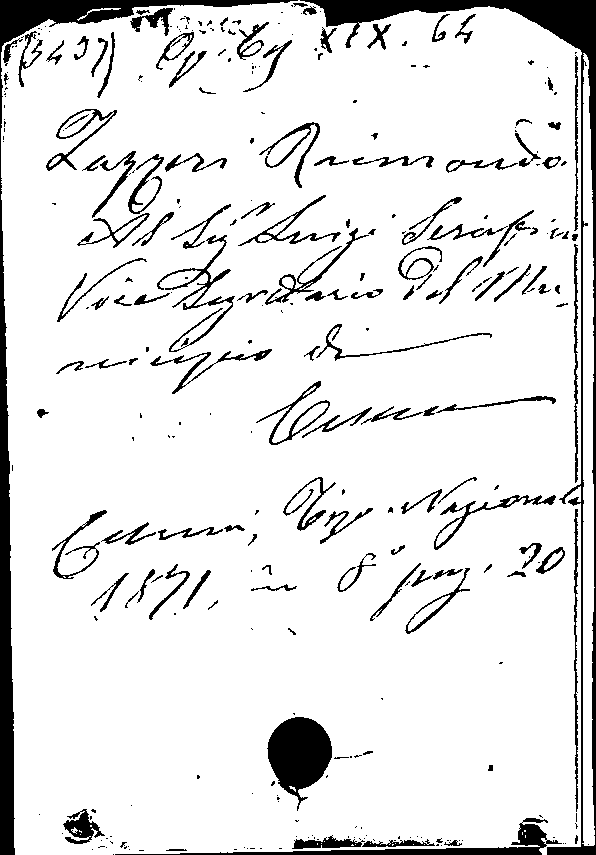 (3437) Op. Cg XIX. 64
Zazzeri Raimondo
Al Sigr Luigi Serafini
Vice Segretario del Mu-
nicipio di
Cesena
Cesena, Tipo. Nazionale
1871, in 8° pag. 20